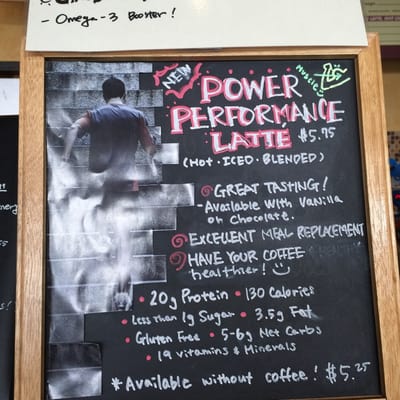 - Omega-3 Booster!
NEW
POWER
PERFORMANCE
LATTE $5.75
(HOT · ICED · BLENDED)
Muscle
GREAT TASTING!
- Available with Vanilla
or Chocolate.
EXCELLENT MEAL REPLACEMENT
HAVE YOUR COFFEE
healthier!
• 20g Protein • 130 Calories
• Less than 1g Sugar • 3.5g Fat
• Gluten Free • 5-6g Net Carbs
• 19 Vitamins & Minerals
*Available without coffee! $5.25